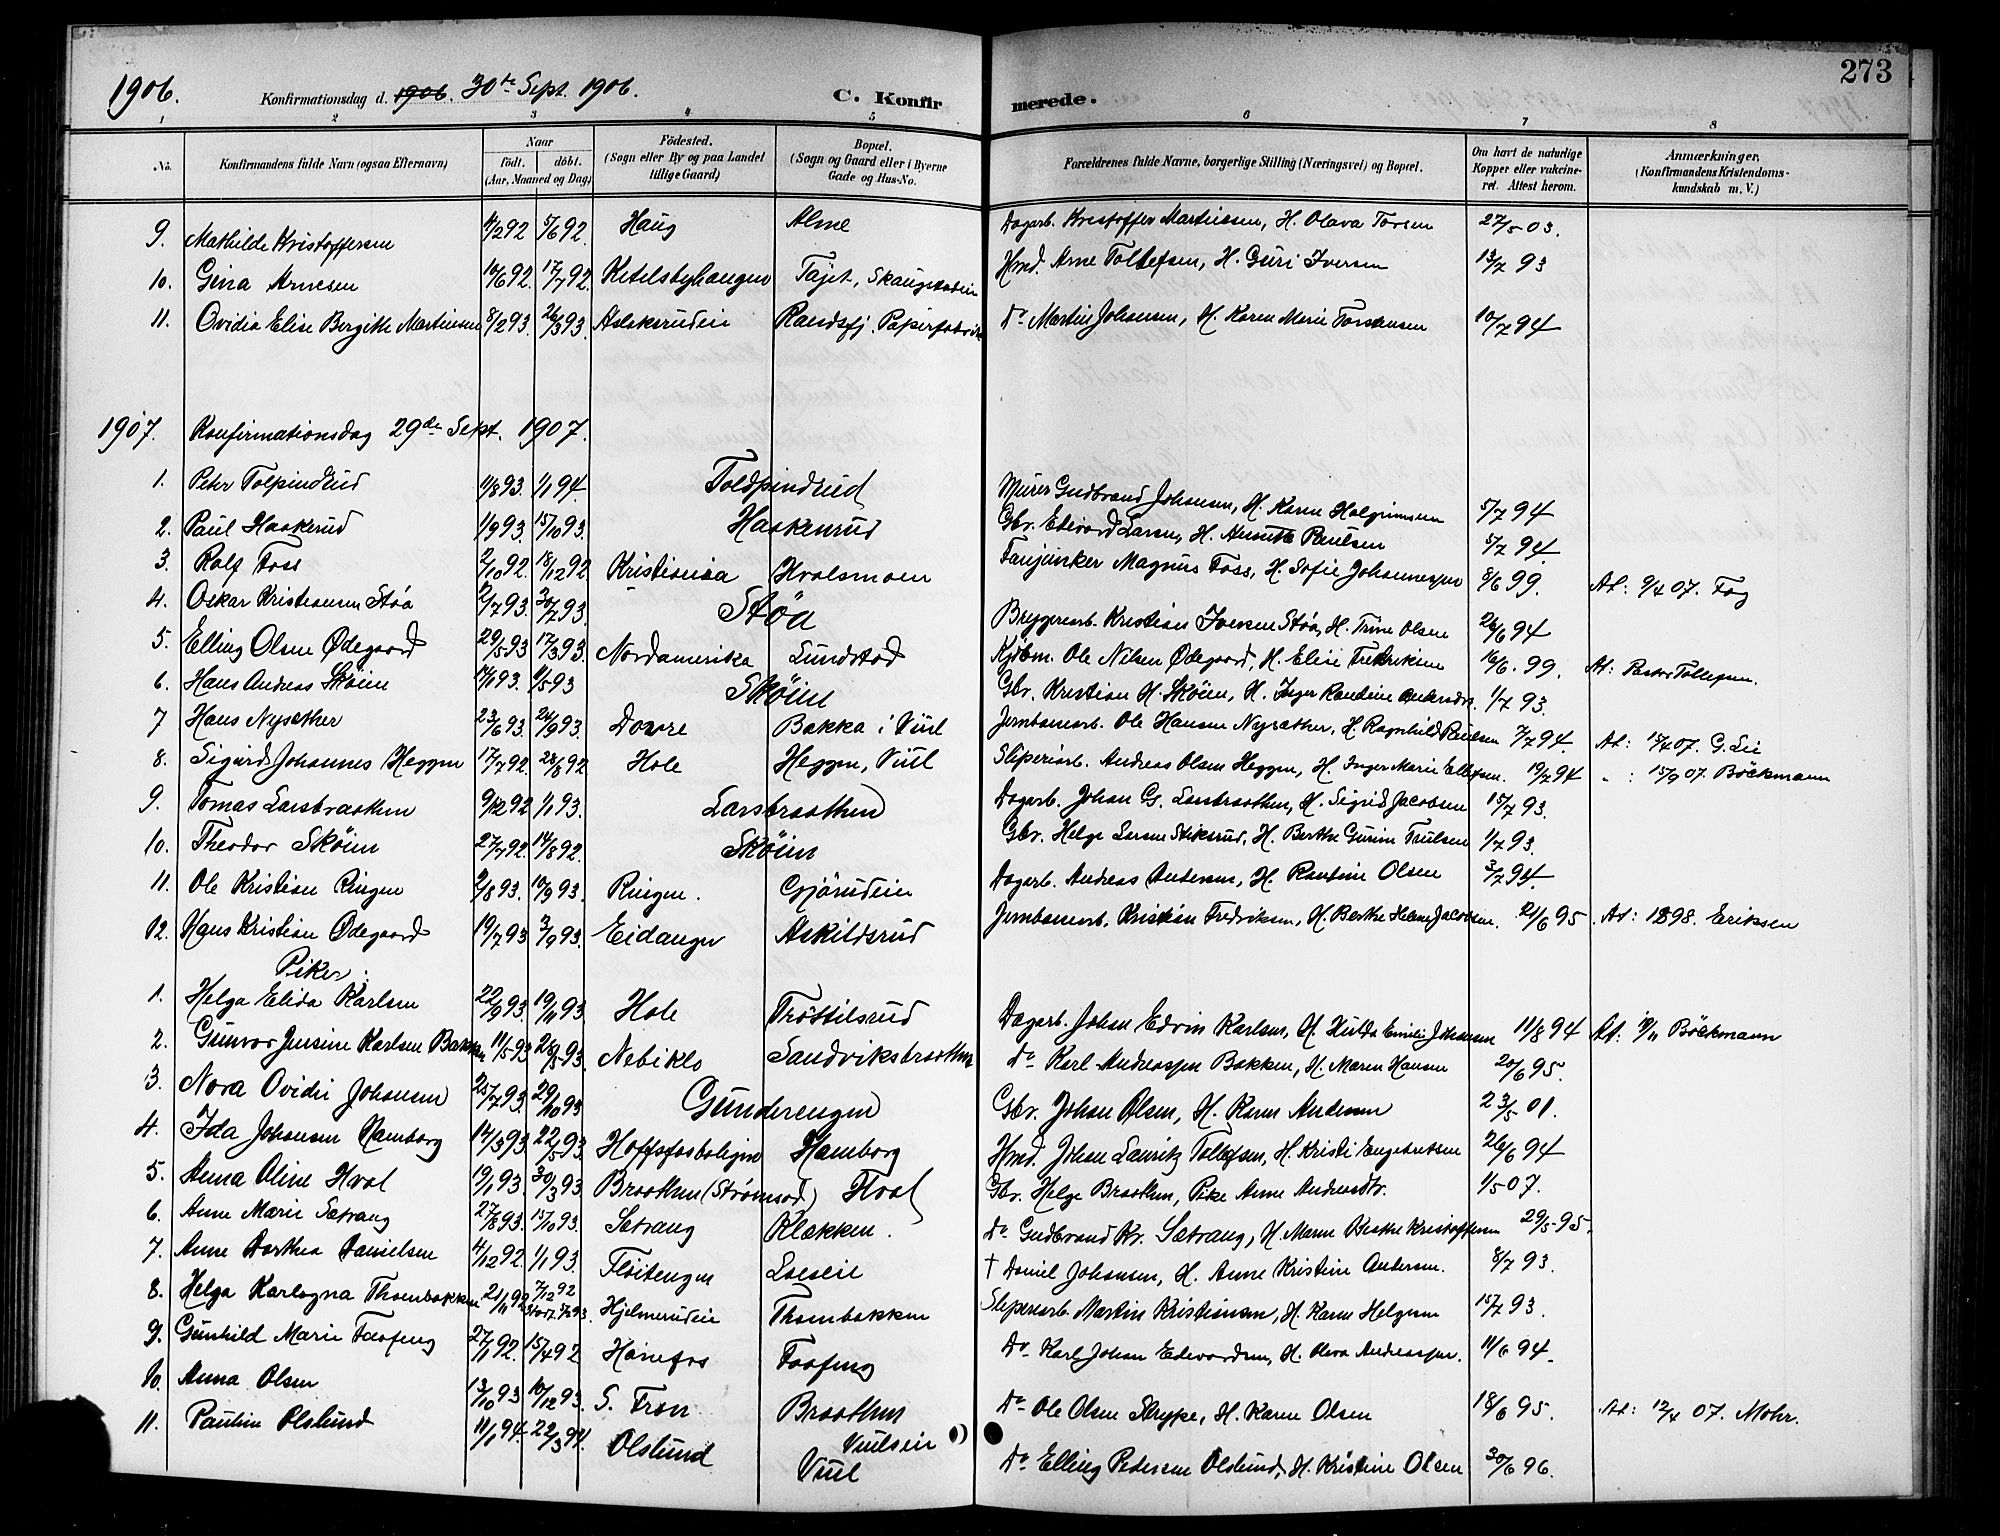 273
1906. Konfirmationsdag d. 1906. 30te Sept. 1906. C. Konfirmerede.
1 2 3 4 5 6 7 8
No. Konfirmandens fulde Navn (ogsaa Efternavn) Naar født. døbt. (Aar, Maaned og Dag) Fødested. (Sogn eller By og paa Landet tillige Gaard) Bopæl. (Sogn og Gaard eller i Byerne Gade og Hus-No. Forældrenes fulde Navne, borgerlige Stilling (Næringsvei) og Bopæl. Om havt de naturlige Kopper eller vakcineret. Attest herom. Anmærkninger. (Konfirmandens Kristendomskundskab m. V.)
9. Mathilde Kristoffersen 5/6 92. Haug Alme Dagarb. Kristoffer Martinsen, H. Olava Torsen 27/5 03.
10. Gina Arnesen 10/6 92. 17/7 92. Ketelsbyhaugen Tajet, Hmd. Arne Tollefsen, H. Guri Iversen 13/7 93
11. Ovidia Elise Bergithe Martinsen 8/2 93. 26/3 93. Aslaksrudei Randsfj. Papirfabrik Do Martin Johansen, H. Karen Marie Torstensen 10/7 94
1907. Konfirmationsdag 29de Sept. 1907.
1. Peter Tolpindrud 11/8 93. 1/1 94 Toldpindrud Murer Gudbrand Johansen, H. Karen Halgrimsen 5/7 94
2. Paul Haakerud 1/9 93. 15/10 93. Haakenrud Gbr. Edvard Larsen, H. Annette Paulsen 5/7 94.
3. Rolf Foss 2/10 92. 18/12 92 Kristiania Hvalsmoen Fanejunker Magnus Foss, H. Sofie Johannessen 8/6 99. At: 9/4 07. Fog
4. Oskar Kristiansen Støa 2/7 93. 30/7 93. Støa Bryggeriarb. Kristian Iversen Støa, H. Trine Olsen 26/6 94
5. Elling Olsen Ødegaard 29/5 93 Nordamerika Lundstad Kjøbm. Ole Nilsen Ødegaard, H. Elise Fredriksen 16/6. 99. At: Pastor Tollefsen.
6. Hans Andreas Skøien 14/1 93. 1/5 93 Skøien Gbr. Kristian H. Skøien, H. Inger Randine Andersdtr. 1/7 93.
7 Hans Nysæther 23/6 93. 24/9 93. Dovre Bakka i Viul Jernbanearb. Ole Hansen Nysæther, H. Ragnhild Paulsen 7/7 94 At: 15/4 07. G. Lie
8. Sigurd Johannes Heggen 17/7 92. 28/8 92 Hole Heggen, Viul Sliperiarb. Andreas Olsen Heggen, H. Inger Marie Ellefsen. 19/7 94 " : 15/9 07. Böckmann
9. Tomas Larsbraathen 9/12 92 1/1 93. Larsbraathen Dagarb. Johan G. Larsbraathen, H. Sigrid Jacobsen 15/7 93.
10. Theodor Skøien 27/7 92. 14/8 92. Skøien Gbr. Helge Larsen Stiksrud, H. Berthe Gurine Trulsen 1/7 93.
11. Ole Kristian Ringen 2/8 93. 10/9 93. Ringen. Gjørudein Dagarb. Andreas Andersen, H. Randine Olsen 3/7 94.
12. Hans Kristian Ødegaard 19/7 93 3/9 93. Eidanger Askildsrud Jernbanearb. Kristian Fredriksen, H. Berthe Helene Jacobsen. 21/6 95 At: 1898. Eriksen
Piker.
1. Helga Elida Karlsen 22/9 93. 19/11 93. Hole Trøttilsrud Dagarb. Johan Edvin Karlsen, H. Hulda Emilie Johansen 11/8 94 At: Böckmann
2. Gunvor Jensine Karlsen Bakken 11/5 93 28/5 93. Nebiklo Sandviksbraathen Do Karl Andreassen Bakken, H. Maren Hansen 20/6 95.
3. Nora Ovidie Johansen 25/7 93. 29/10 93 Gunderengen Gbr. Johan Olsen, H. Karen Andersen 23/5 01.
4. Ida Johansen Hamborg 14/3 93 22/5 93. Hoffsfosboligen Hamborg Hmd. Johan Lauritz Tollefsen, H. Kristi Engebretsen 26/6 94
5. Anna Oline Hval 19/1 93. 30/3 93 Braathen (Strømsod) Hval Gbr. Helge Braathen, Pike Anne Andreasdtr. 1/5 07.
6. Anne Marie Sætrang 27/8 93. 15/10 93. Sætrang Klækken. Do Gudbrand Kr. Sætrang, H. Maren Berthe Kristoffersen 29/5 95.
7. Anne Dorthea Danielsen 4/12 92. 1/1 93. Fløitengen † Daniel Johansen, H. Anne Kristine Andersen. 8/7 93.
8. Helga Karlogna Thombakken 21/11 92 7/12 92 Hjelmerudeie Thombakken Sliperiarb. Martin Kristiansen, H. Karen Helgesen 15/7 93.
9. Gunhild Marie Faafeng 27/1 92. 15/4 92 Hønefos Faafeng Do Karl Johan Edvardsen, H. Oleva Andreassen. 11/6 94.
10. Anna Olsen 13/10 93 10/12 93. S. Fron Braathen Viulseie Do Ole Olsen Skryke, H. Karen Olsen 18/6 95. At: 12/4 07. Mohr.
11. Pauline Olslund 11/1 94. 22/3 94. Olslund Viul Do Elling Pedersen Olslund, H. Kristine Olsen 30/6 96.